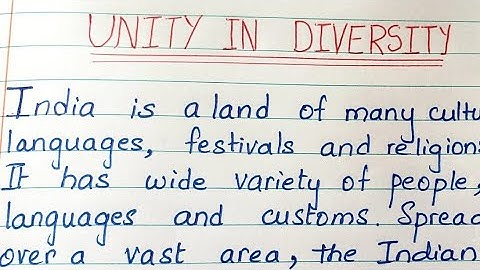 UNITY IN DIVERSITY
India is a land of many cultu
languages, festivals and religions
It has wide variety of people,
languages and customs. Spread
over a vast area, the Indian